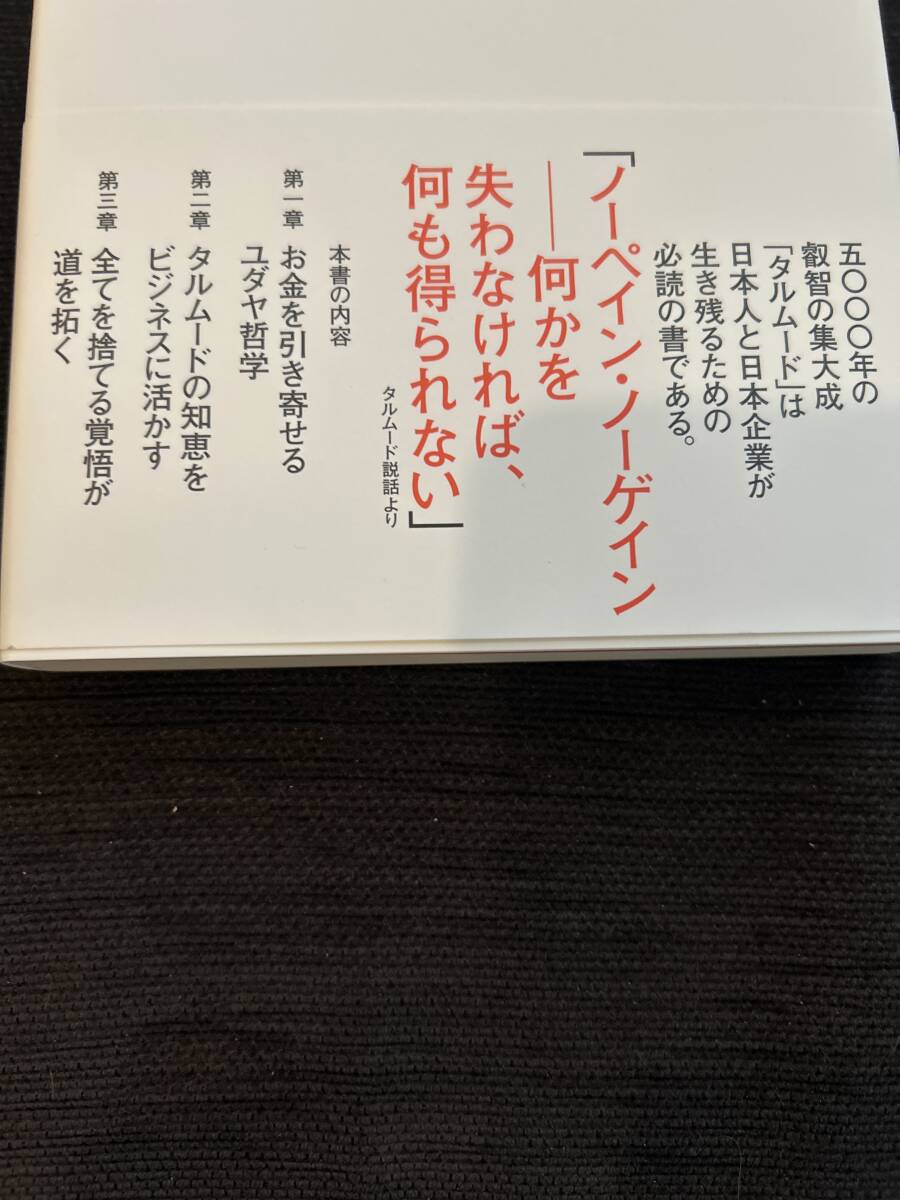 五〇〇〇年の
叡智の集大成
「タルムード」は
日本人と日本企業が
生き残るための
必読の書である。
「ノーペイン・ノーゲイン
――何かを
失わなければ、
何も得られない」
タルムード説話より
本書の内容
第一章 お金を引き寄せる
ユダヤ哲学
第二章 タルムードの知恵を
ビジネスに活かす
第三章 全てを捨てる覚悟が
道を拓く